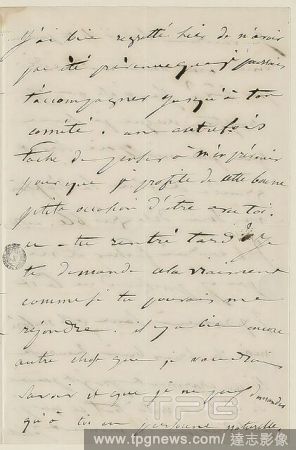 J'ai bien regretté hier de n'avoir
pas été prévenue que je pouvais
t'accompagner jusqu'à ton
comité. une autre fois
tache de penser à m'en prévenir
pour que je profite de cette bonne
petite occasion d'être avec toi.
es-tu rentré tard? je
te demande cela vraiment
comme si tu pouvais me
répondre. il y a bien encore
autre chose que je voudrais
savoir et que je ne peux demander
qu'à toi en personne naturelle
TPG
www.tpgnews.com / 達志影像